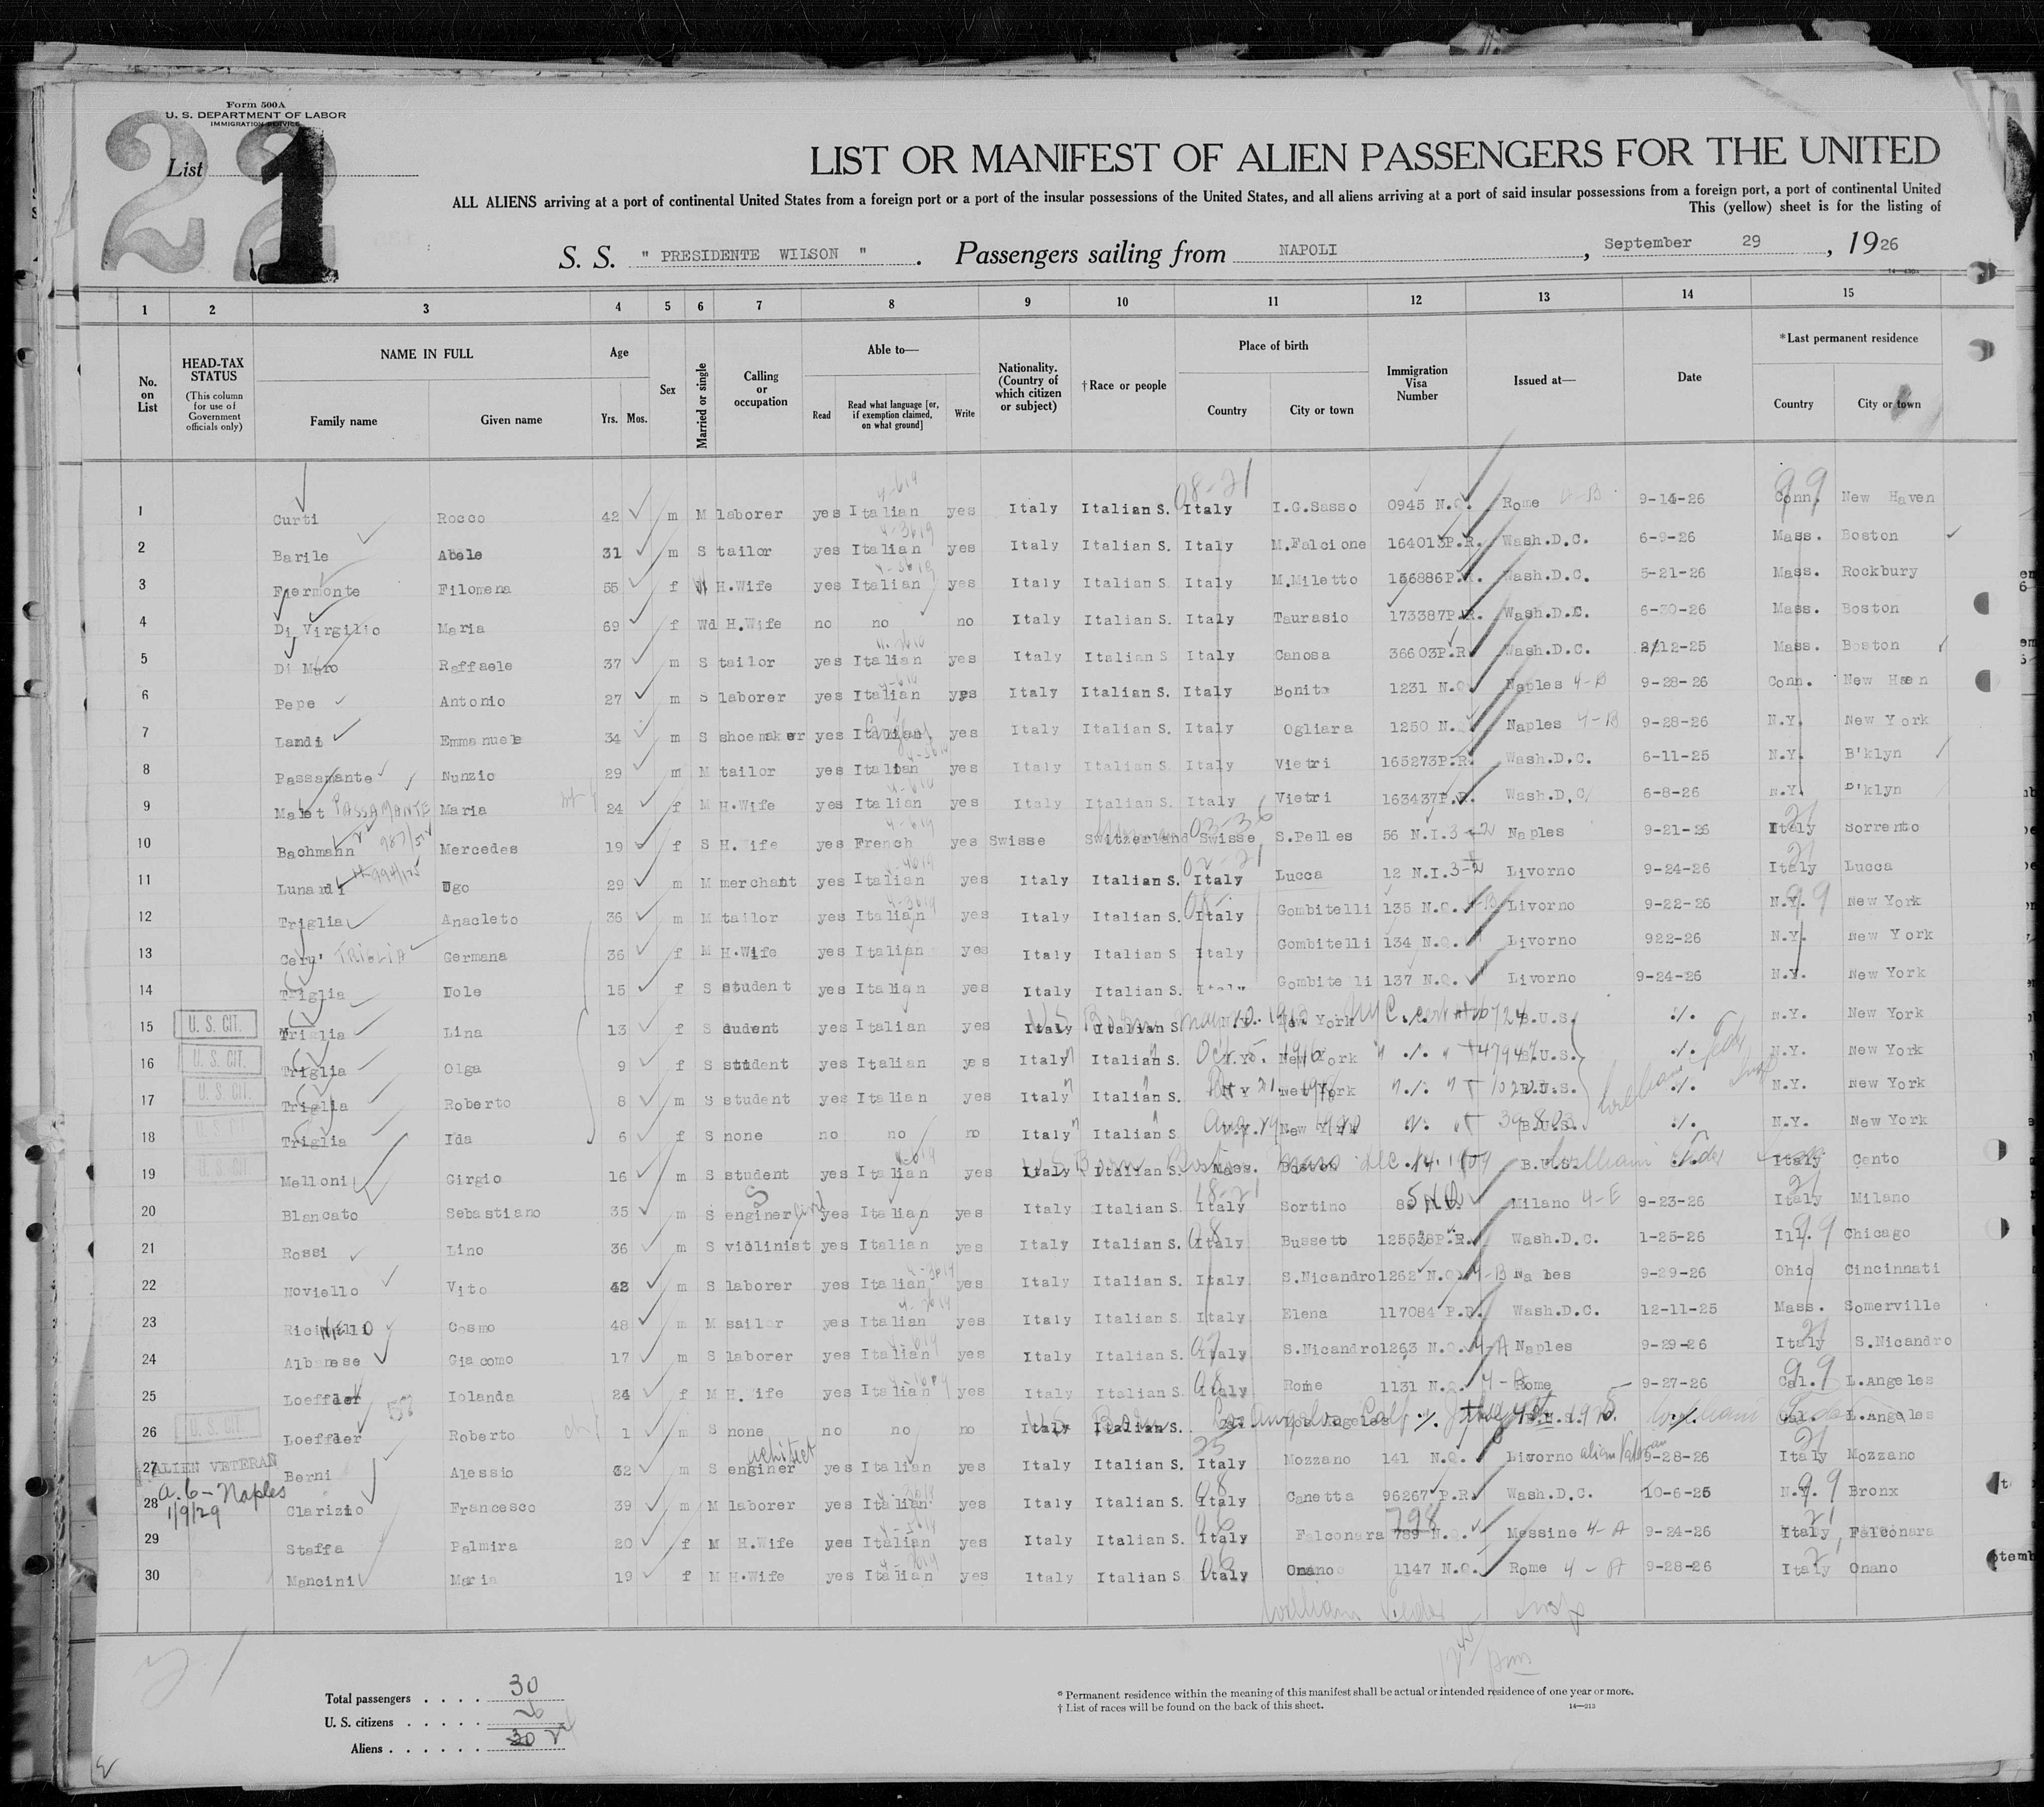 Form 500A
U. S. DEPARTMENT OF LABOR
IMMIGRATION SERVICE
22
List 1
LIST OR MANIFEST OF ALIEN PASSENGERS FOR THE UNITED
ALL ALIENS arriving at a port of continental United States from a foreign port or a port of the insular possessions of the United States, and all aliens arriving at a port of said insular possessions from a foreign port, a port of continental United
This (yellow) sheet is for the listing of
S. S. " PRESIDENTE WILSON " . Passengers sailing from NAPOLI , September 29 , 1926
1 2 3 4 5 6 7 8 9 10 11 12 13 14 15
No. on List
HEAD-TAX STATUS
(This column for use of Government officials only)
NAME IN FULL
Family name Given name
Age
Yrs. Mos.
Sex
Married or single
Calling or occupation
Able to—
Read Read what language [or, if exemption claimed, on what ground] Write
Nationality. (Country of which citizen or subject)
† Race or people
Place of birth
Country City or town
Immigration Visa Number
Issued at—
Date
*Last permanent residence
Country City or town
1 Curti Rocco 42 m M laborer yes Italian yes Italy Italian S. Italy I.G.Sasso 0945 N.Q. Rome 9-14-26 Conn. New Haven
2 Barile Abele 31 m S tailor yes Italian yes Italy Italian S. Italy M.Falcione 164013P.R. Wash.D.C. 6-9-26 Mass. Boston
3 Fiermonte Filomena 55 f H.Wife yes Italian yes Italy Italian S. Italy M.Miletto 156886P.R. Wash.D.C. 5-21-26 Mass. Rockbury
4 Di Virgilio Maria 69 f Wd H.Wife no no no Italy Italian S. Italy Taurasio 173387P.R. Wash.D.C. 6-30-26 Mass. Boston
5 Di Muro Raffaele 37 m S tailor yes Italian yes Italy Italian S Italy Canosa 36603P.R. Wash.D.C. 2/12-25 Mass. Boston
6 Pepe Antonio 27 m S laborer yes Italian yes Italy Italian S. Italy Bonita 1231 N.Q. Naples 4-B 9-28-26 Conn. New Haen
7 Landi Emmanuele 34 m S shoemaker yes Italian yes Italy Italian S. Italy Ogliara 1250 N.Q. Naples 4-B 9-28-26 N.Y. New York
8 Passamante Nunzio 29 m M tailor yes Italian yes Italy Italian S. Italy Vietri 165273P.R. Wash.D.C. 6-11-25 N.Y. B'klyn
9 Malet PASSAMANTE Maria 24 f M H.Wife yes Italian yes Italy Italian S. Italy Vietri 163437P.R. Wash.D.C 6-8-26 N.Y. B'klyn
10 Bachmann Mercedes 19 f S H.Wife yes French yes Swisse Switzerland Swisse S.Pelles 56 N.I. 3-2 Naples 9-21-26 Italy Sorrento
11 Lunardi Ugo 29 m M merchant yes Italian yes Italy Italian S. Italy Lucca 12 N.I. 3-2 Livorno 9-24-26 Italy Lucca
12 Triglia Anacleto 36 m M tailor yes Italian yes Italy Italian S. Italy Gombitelli 135 N.Q. Livorno 9-22-26 N.Y. New York
13 TRIGLIA Germana 36 f M H.Wife yes Italian yes Italy Italian S Italy Gombitelli 134 N.Q. Livorno 922-26 N.Y. New York
14 Triglia Iole 15 f S student yes Italian yes Italy Italian S. Italy Gombite li 137 N.Q. Livorno 9-24-26 N.Y. New York
15 U. S. CIT. Triglia Lina 13 f S yes Italian yes Italy Italian S New York B.U.S. ./. N.Y. New York
16 U. S. CIT. Triglia Olga 9 f S student yes Italian yes Italy Italian S. N.Y. New York B.U.S. ./. N.Y. New York
17 U. S. CIT. Triglia Roberto 8 m S student yes Italian yes Italy Italian S. N.Y New York B.U.S. ./. N.Y. New York
18 U. S. CIT. Triglia Ida 6 f S none no no no Italy Italian S N.Y. New York B.U.S. ./. N.Y. New York
19 U. S. CIT. Melloni Girgio 16 m S student yes Italian yes Italy Italian S. Mass. Boston Dec. 14. 1909 B.U.S. Italy Cento
20 Blancato Sebastiano 35 m S enginer yes Italian yes Italy Italian S. Italy Sortino Milano 4-E 9-23-26 Italy Milano
21 Rossi Lino 36 m S violinist yes Italian yes Italy Italian S. Italy Bussetto 125538P.R. Wash.D.C. 1-25-26 Ill. Chicago
22 Noviello Vito m S laborer yes Italian yes Italy Italian S. Italy S.Nicandro 1262 N.Q. 4-B Naples 9-29-26 Ohio Cincinnati
23 Cosmo 48 m M sailor yes Italian yes Italy Italian S. Italy Elena 117084 P.R. Wash.D.C. 12-11-25 Mass. Somerville
24 Albanese Giacomo 17 m S laborer yes Italian yes Italy Italian S. Italy S.Nicandro 1263 N.Q. 4-A Naples 9-29-26 Italy S.Nicandro
25 Loeffler Iolanda 24 f M H.Wife yes Italian yes Italy Italian S. Italy Rome 1131 N.Q. Rome 9-27-26 Cal. L.Angeles
26 U. S. CIT. Loeffler Roberto 1 m S none no no no Italy Italian S. Los Angeles B.U.S. Cal. L.Angeles
27 ALIEN VETERAN Berni Alessio 32 m S enginer architect yes Italian yes Italy Italian S. Italy Mozzano 141 N.Q. Livorno alien Veteran 9-28-26 Italy Mozzano
a.6- Naples 1/9/29
28 Clarizio Francesco 39 m M laborer yes Italian yes Italy Italian S. Italy Canetta 96267 P.R. Wash.D.C. 10-6-25 N.Y. Bronx
29 Staffa Palmira 20 f M H.Wife yes Italian yes Italy Italian S. Italy Falconara 789 798 N.Q. Messine 4-A 9-24-26 Italy Falconara
30 Mancini Maria 19 f M H.Wife yes Italian yes Italy Italian S Italy Onano 1147 N.Q. Rome 4-A 9-28-26 Italy Onano
Total passengers . . . . 30
U. S. citizens . . . . . 6
Aliens . . . . . . 30
* Permanent residence within the meaning of this manifest shall be actual or intended residence of one year or more.
† List of races will be found on the back of this sheet.
14—213